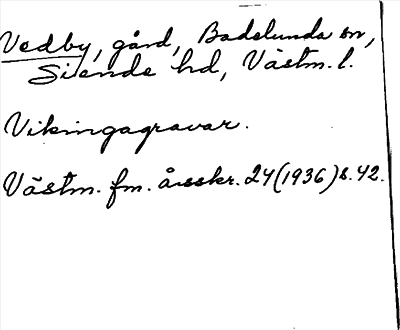 Vedby, gård, Badelunda sn,
Siende hd, Västm. l.
Vikingagravar.
Västm. fm. årsskr. 24 (1936) s. 42.